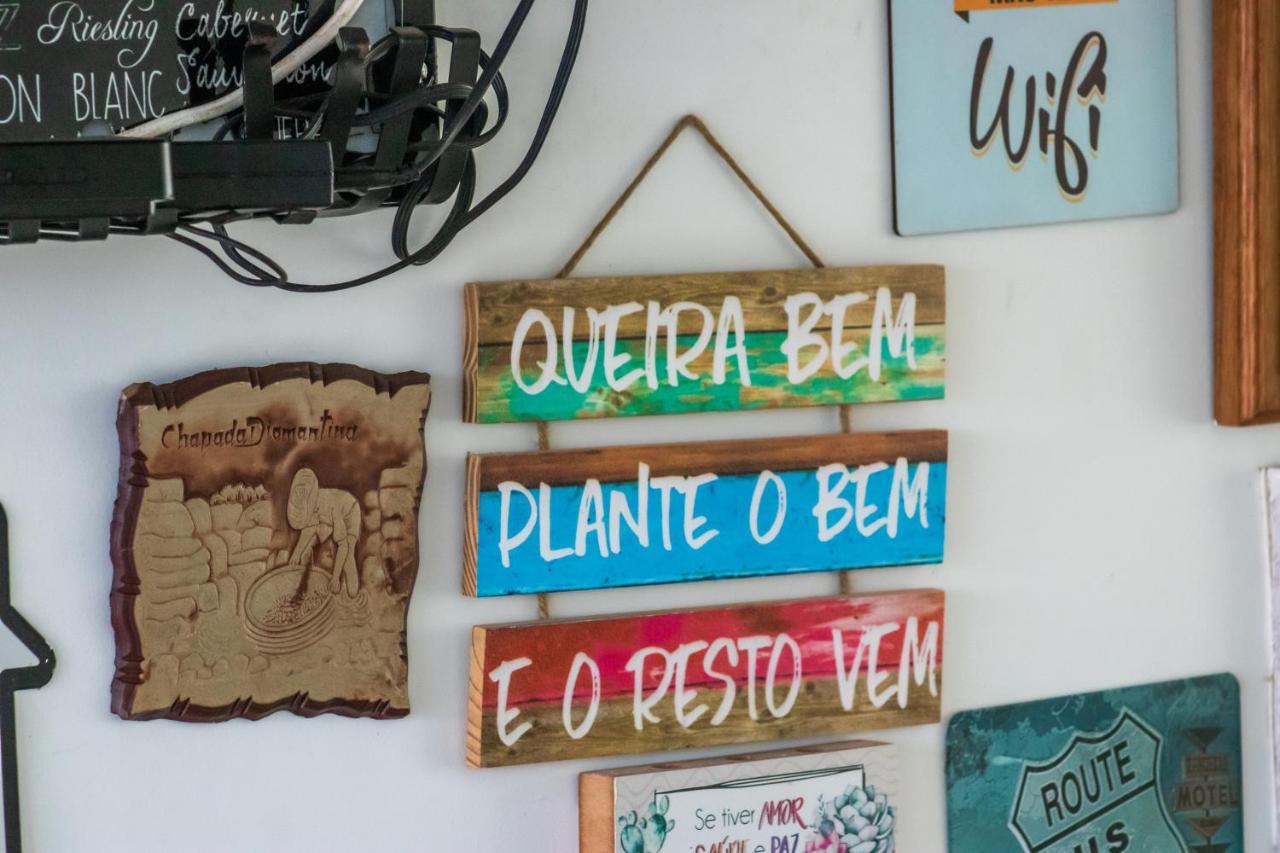 Riesling Cabernet
BLANC Sauvignon
Wifi
QUEIRA BEM
PLANTE O BEM
E O RESTO VEM
Chapada Diamantina
Se tiver AMOR
SAÚDE e PAZ
ROUTE
US
MOTEL